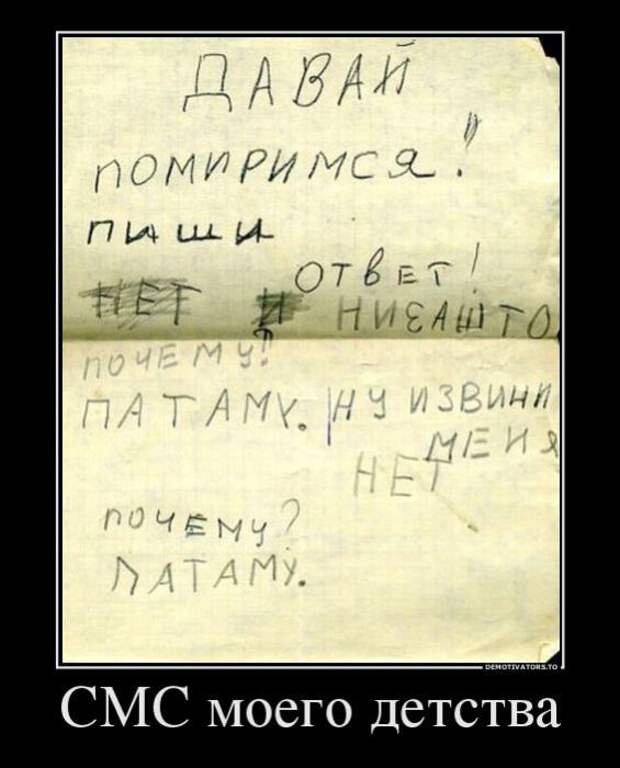 ДАВАЙ
ПОМИРИМСЯ!
ПИШИ
ОТВЕТ!
НЕТ И НИЗАШТО
ПОЧЕМУ?
ПАТАМУ. НУ ИЗВИНИ
МЕНЯ
НЕТ
ПОЧЕМУ?
ПАТАМУ.
DEMOTIVATORS.TO
СМС моего детства